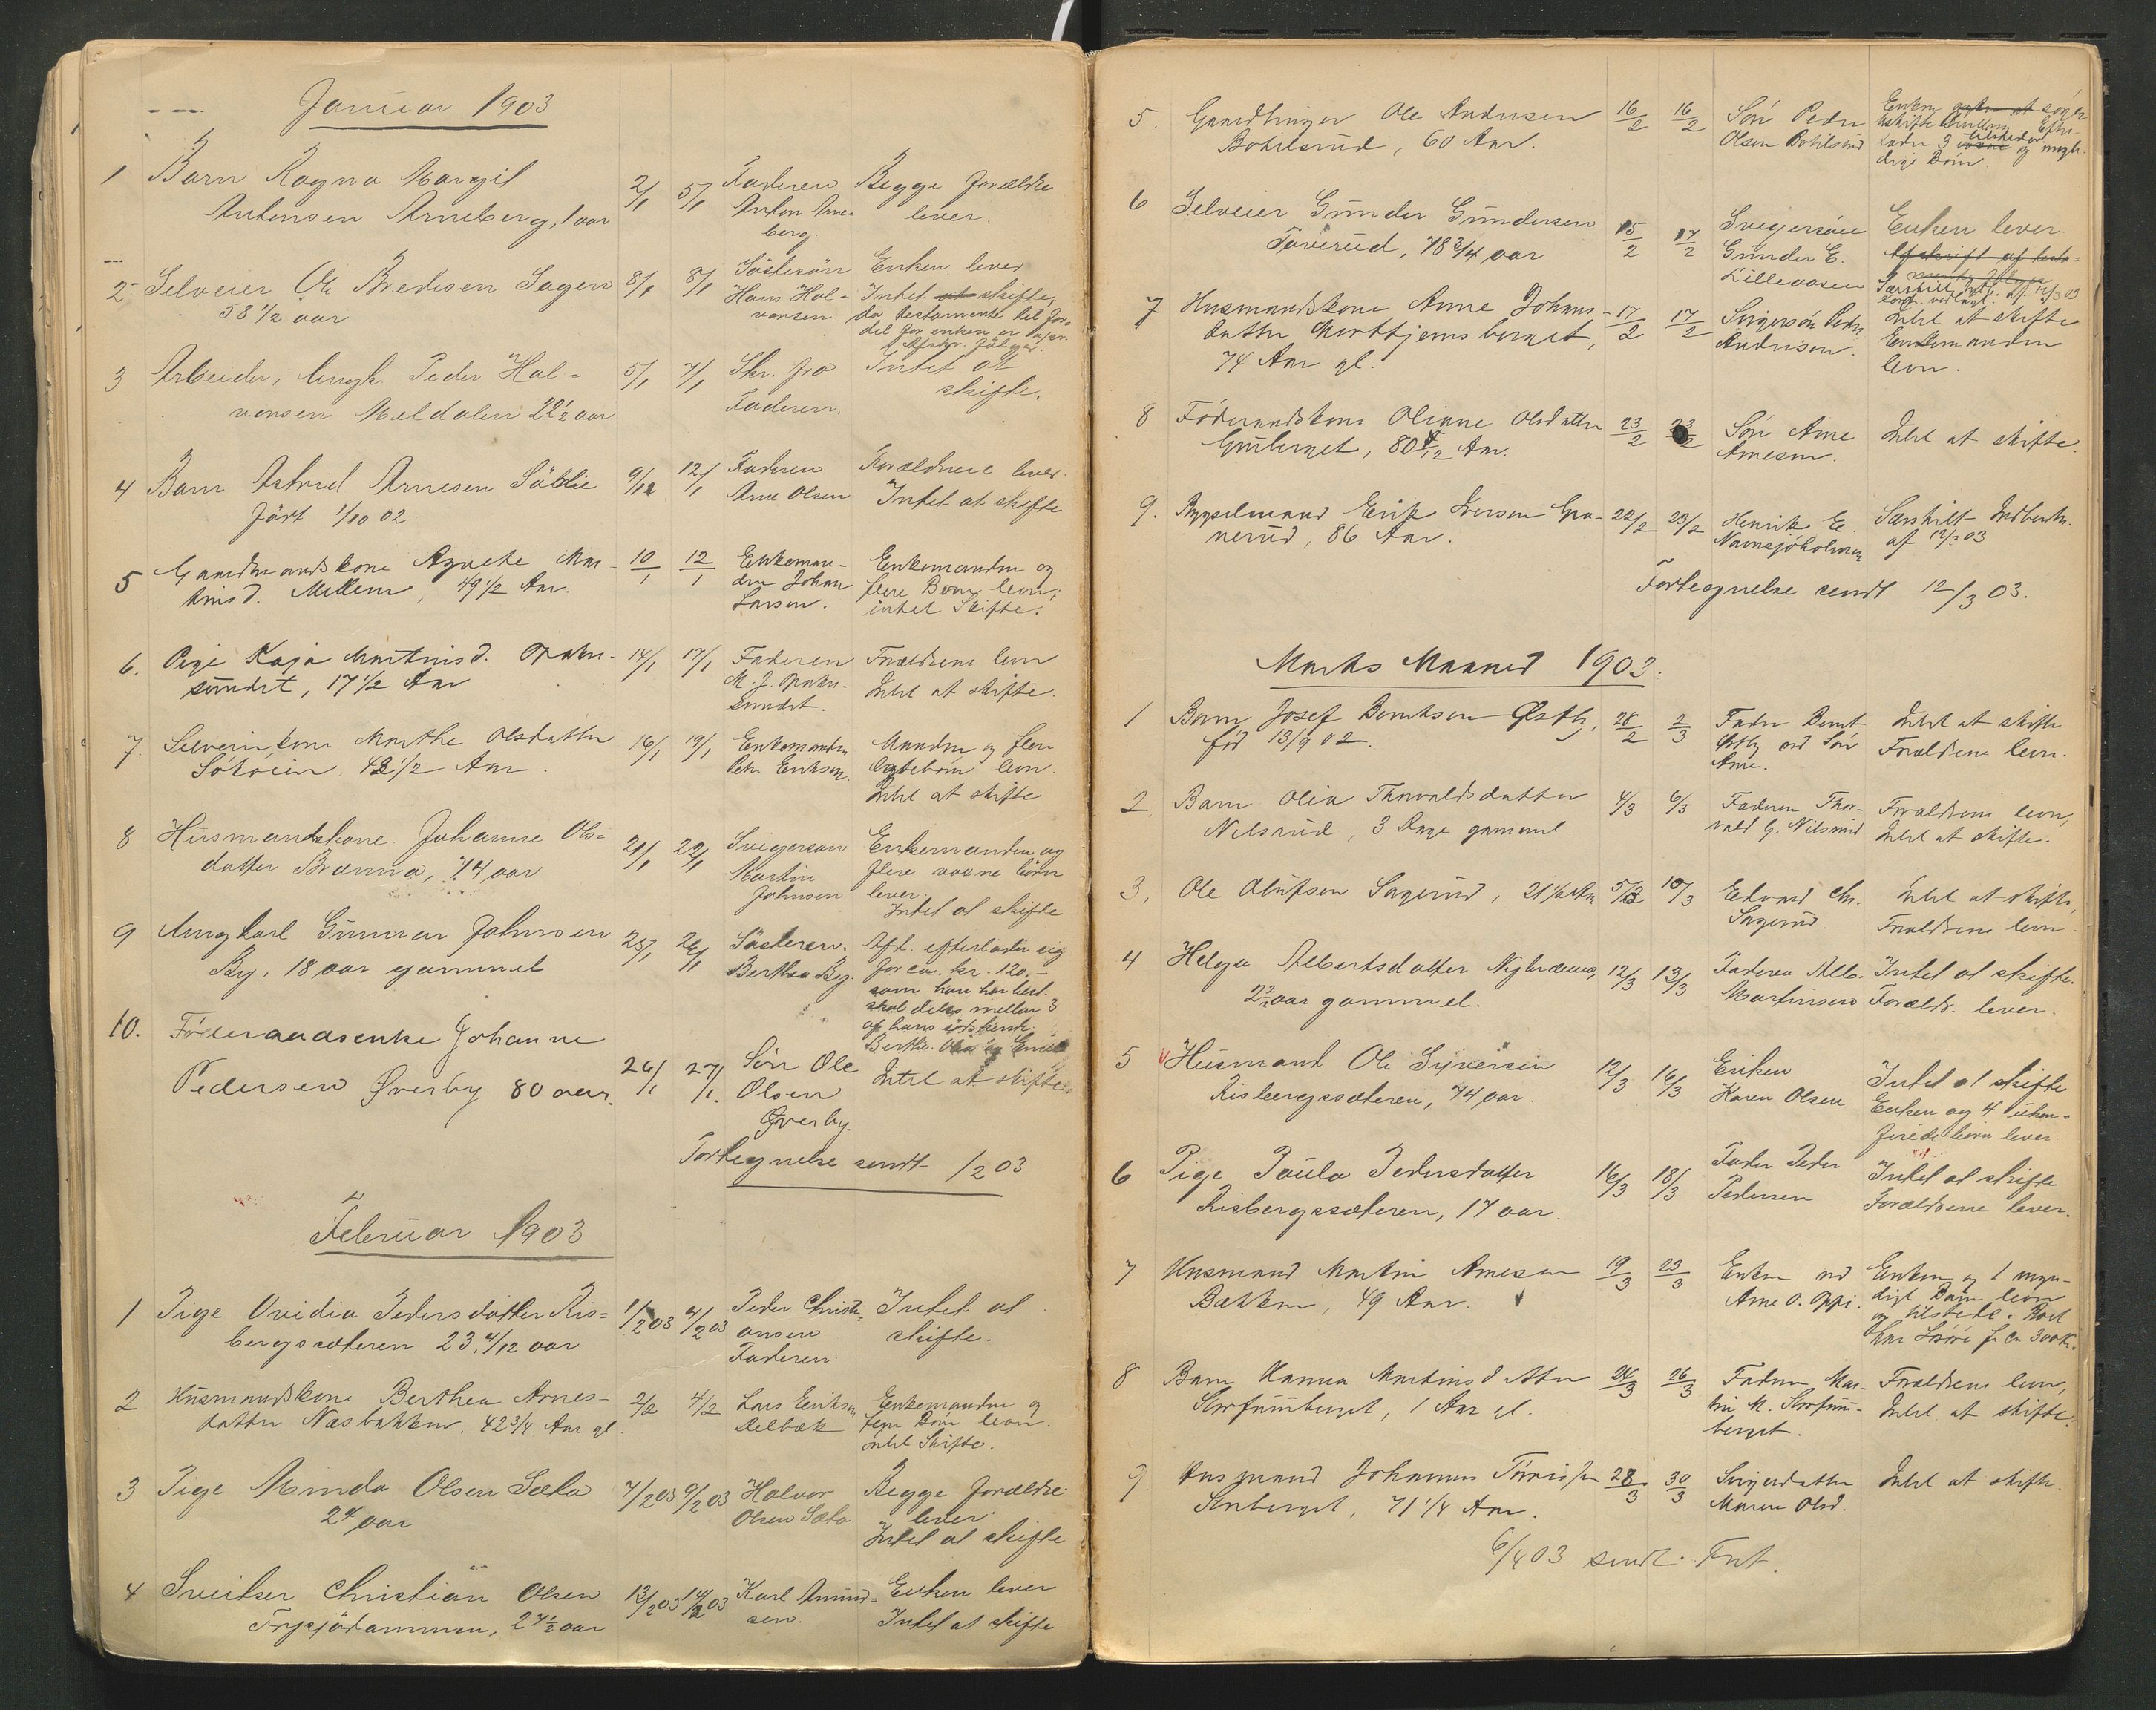 Januar 1903
1 Barn Ragna Margit 2/1 5/1 Faderen Begge forældre
Antonsen Arneberg, 1 aar Anton Arne- lever.
berg.
2 Selveier Ole Bredesen Sagen 8/1 8/1 Søstersøn Enken lever
58 1/2 aar Hans Hal- Intet at skifte,
vorsen da testamente til for-
del for enken er
3 Arbeider, Ungk. Peder Hal- 5/1 7/1 Skr. fra Intet at
vorsen Meldalen 22 1/2 aar Faderen. skifte.
4 Barn Astrid Arnesen Sätlie 9/12 12/1 Faderen Forældrene lever.
født 1/10 02 Arne Olsen Intet at skifte
5 Gaardmandskone Agnete Mar- 10/1 12/1 Enkeman- Enkemanden og
tinsd. Mellem, 49 1/2 Aar. den Johan flere Børn lever,
Larsen. intet Skifte.
6. Pige Kaja Martinsd. Opaker- 14/1 17/1 Faderen Forældrene lever
sundet, 17 1/2 Aar M. J. Opaker- Intet at skifte.
sundet.
7. Selveierkone Marthe Olsdatter 16/1 19/1 Enkemanden Manden og flere
42 1/2 Aar. Peter Eriksen. Ægtebørn lever.
Intet at skifte
8 Husmandskone Johanne Ols- 21/1 22/1 Svigersøn Enkemanden og
datter Brænna, 74 aar Martin flere voxne børn
Johnsen lever.
Intet at skifte
9 Ungkarl Gunnar Johnsen 25/1 26/1 Søsteren. Afd. efterlader sig
By, 18 aar gammel Berthea By. for ca. kr. 120.-
som han har best.
skal deles mellem 3
af hans søskende.
10. Føderaadsenke Johanne
Pedersen Øverby 80 aar. 26/1 27/1. Søn Ole Intet at skifte.
Olsen
Øverby.
Fortegnelse sendt /2 03
Februar 1903
1 Pige Ovidia Pedersdatter Ris- 1/2 03 4/2 03 Peder Christi- Intet at
bergssæteren 23 4/12 aar ansen skifte.
Faderen.
2 Husmandskone Berthea Arnes- 2/2 4/2 Lars Eriksen Enkemanden og
datter Næsbakken, 42 3/4 Aar gl. Delbæk fem Børn lever.
Intet Skifte.
3 Pige Minda Olsen Sæta 7/2 03 9/2 03 Halvor Begge forældre
24 aar Olsen Sæta lever.
Intet at skifte
4 Sveitser Christian Olsen 13/2 03 14/2 03 Karl Amund- Enken lever
Frysjødammen, 27 1/2 aar sen. Intet at skifte
5. Gaardbruger Ole Andersen 16/2 16/2 Søn Peder Enken
Bohilsrud, 60 Aar. Olsen Bohilsrud
6 Selveier Gunder Gundersen 15/2 17/2 Svigersøn Enken lever.
Taverud, 78 3/4 aar Gunder E.
Lillevasen
7 Husmandskone Anne Johans- 17/2 17/2 Svigersøn Peder Intet at skifte
datter 74 Aar gl. Andersen. Enkemanden
lever.
8 Føderaadskone Oliane Olsdatter 23/2 23/2 Søn Arne Intet at skifte.
80 Aar. Arnesen.
9. Erik Iversen Gra- 22/2 23/2 Henrik E. Særskilt Indberetn.
nerud, 86 Aar. Navnsjøholmen af 12/3 03
Fortegnelse sendt 12/3 03.
Marts Maaned 1903.
1 Barn Josef Berntsen Østby, 28/2 2/3 Fader Bernt Intet at skifte
fød 13/9 02. Østby ved Søn Forældrene lever.
Arne.
2. Barn Olia Thorvaldsdatter 4/3 6/3 Faderen Thor- Forældrene lever,
Nilsrud, 3 Dage gammel. vald G. Nilsrud Intet at skifte.
3. Ole Olufsen Sagerud, 21 1/2 Aar 5/3 10/3 Edvard Chr. Intet at skifte,
Sagerud. Forældrene lever.
4 Helga Albertsdatter Nybrænna, 12/3 13/3 Faderen Alb. Intet at skifte.
aar gammel. Martinsen Forældr. lever.
5 Husmand Ole Syversen 12/3 16/3 Enken Intet at skifte
Risbergssæteren, 44 aar. Karen Olsen Enken og 4 ukon-
firmede børn lever.
6 Pige Paula Pedersdatter 16/3 18/3 Fader Peder Intet at skifte
Risbergssæteren, 17 aar. Pedersen Forældrene lever.
7 Husmand Martin Arnesen 19/3 23/3 Enken ved Enken og 1 myn-
Bakken, 49 Aar. Arne O. Oppi. digt Barn lever
og tilstede. Boet
8 Barn Hanna Martinsdatter 24/3 26/3 Faderen Mar- Forældrene lever,
Storfurubjerget, 1 Aar gl. tin M. Storfuru- Intet at skifte.
berget.
9 Husmand Johannes 28/3 30/3 Svigerdatter Intet at skifte.
71 1/4 Aar. Maren Olsd.
6/4 03 sendt. Fnt.